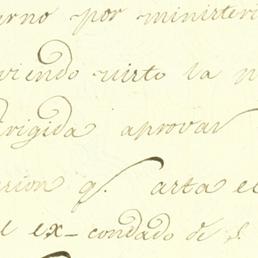 erno por ministeri
viendo visto la n
irigida aprovar
cion q. arta el
l ex-condado de S.